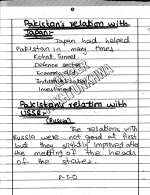 Pakistan's relation with
Japan:-
Japan had helped
Pakistan in many times
Kohat Tunnel
Defence sector
Economic aid
Industrial
Investment
Pakistan's relation with
USSR:-
(Russia)
The relations with
Russia were not good at first
but they slightly improved after
the meeting of the heads
of the states.
P-T-O